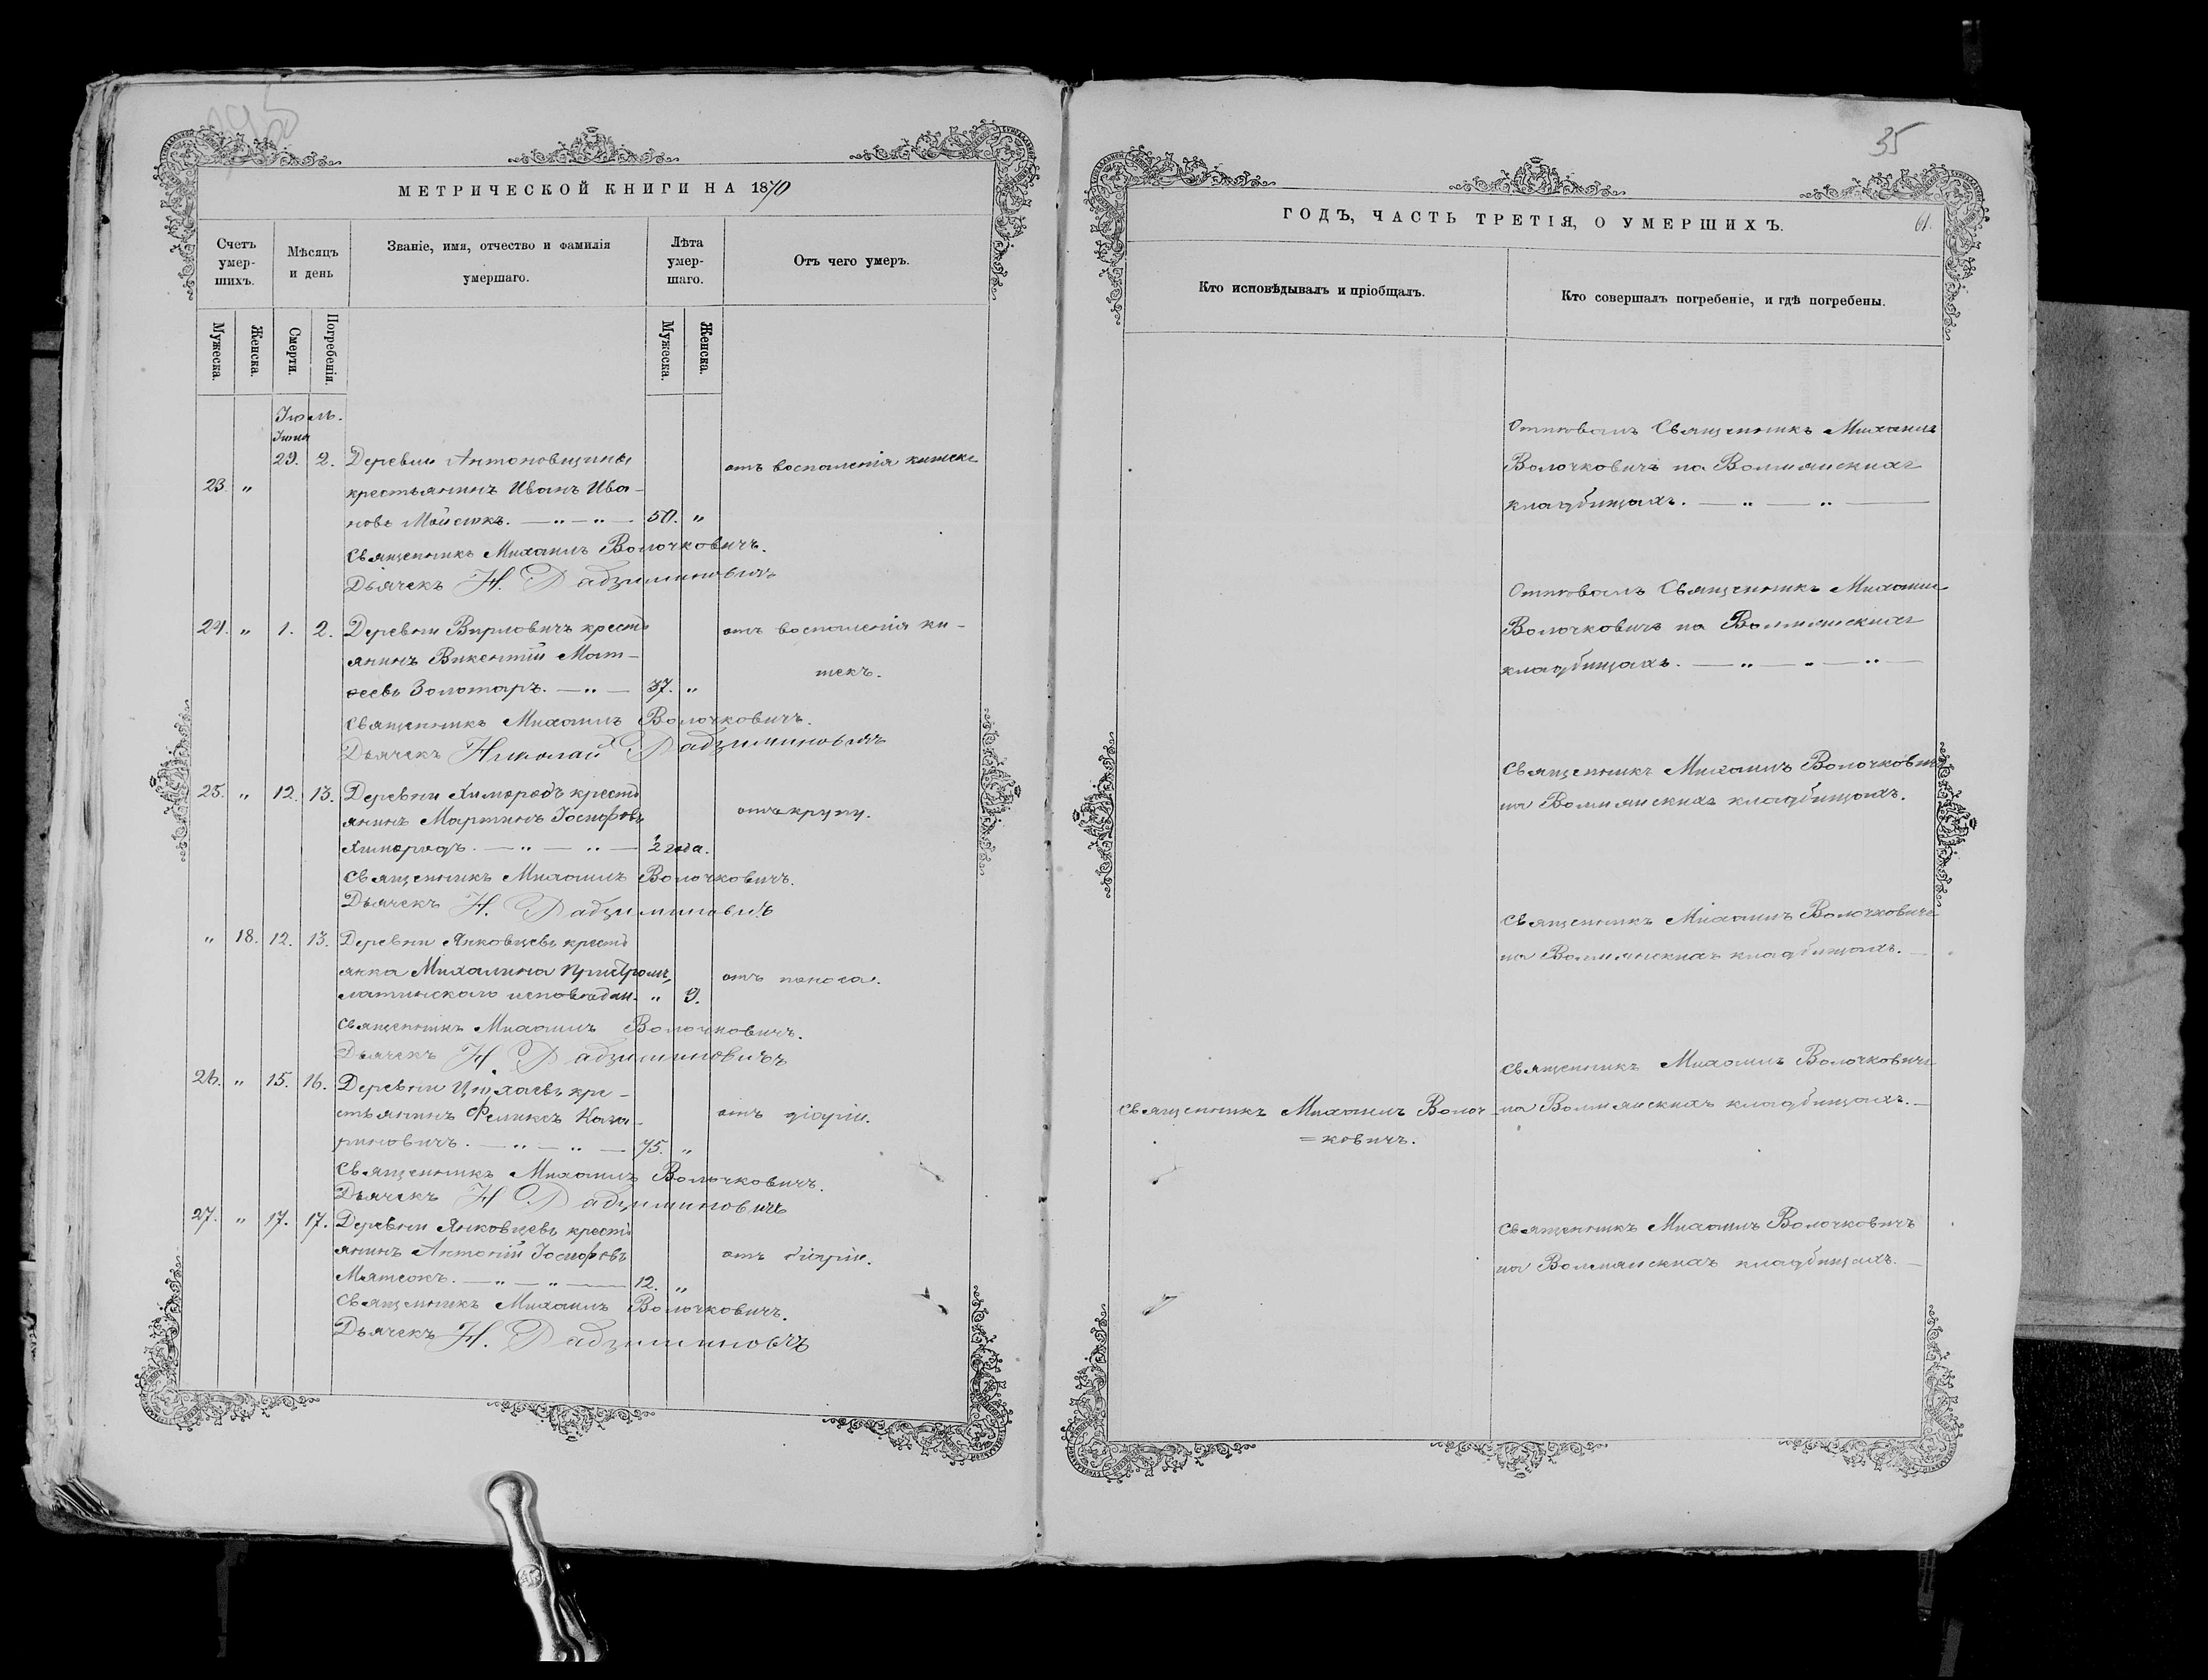 35
МЕТРИЧЕСКОЙ КНИГИ НА 1870
Счетъ умершихъ.
Мѣсяцъ и день
Званіе, имя, отчество и фамилія умершаго.
Лѣта умершаго.
Отъ чего умеръ.
Мужеска.
Женска.
Смерти.
Погребенія.
Мужеска.
Женска.
Іюль.
Іюня
29. 2. Деревни Антоновщины отъ воспаленія кишекъ
23. " крестьянинъ Иванъ Ива-
новъ 50. "
Священникъ Михаилъ Волочковичъ.
Дьячекъ Н. Радзиминовичъ
24. " 1. 2. Деревни кресть отъ воспаленія ки-
янинъ Викентій Мат- шекъ.
ѳеевъ Золотаръ. 37. "
Священникъ Михаилъ Волочковичъ.
Дьячекъ Николай Радзиминовичъ
25. " 12. 13. Деревни Химородъ кресть
янинъ Мартинъ Іосифовъ отъ крупу.
Химородъ. 2 года.
Священникъ Михаилъ Волочковичъ.
Дьячекъ Н. Радзиминовичъ
" 18. 12. 13. Деревни Янковцевъ кресть
янка Михалина отъ поноса.
латинскаго исповѣдан. " 9.
Священникъ Михаилъ Волочковичъ.
Дьячекъ Н. Радзиминовичъ
26. " 15. 16. Деревни кре-
стьянинъ Феликсъ Каза- отъ діаріи.
риновичъ. 75. "
Священникъ Михаилъ Волочковичъ.
Дьячекъ Н Радзиминовичъ
27. " 17. 17. Деревни Янковцевъ кресть
янинъ Антоній Іосифовъ отъ діаріи.
12. "
Священникъ Михаилъ Волочковичъ.
Дьячекъ Н. Радзиминовичъ
ГОДЪ, ЧАСТЬ ТРЕТІЯ, О УМЕРШИХЪ.
61.
Кто исповѣдывалъ и пріобщалъ.
Кто совершалъ погребеніе, и гдѣ погребены.
Отпѣвалъ Священникъ Михаилъ
Волочковичъ на Волмянскихъ
кладбищахъ.
Отпѣвалъ Священникъ Михаилъ
Волочковичъ на Волмянскихъ
кладбищахъ.
Священникъ Михаилъ Волочковичъ
на Волмянскихъ кладбищахъ.
Священникъ Михаилъ Волочковичъ
на Волмянскихъ кладбищахъ.
Священникъ Михаилъ Волочковичъ
Священникъ Михаилъ Волоч- на Волмянскихъ кладбищахъ.
=ковичъ.
Священникъ Михаилъ Волочковичъ
на Волмянскихъ кладбищахъ.